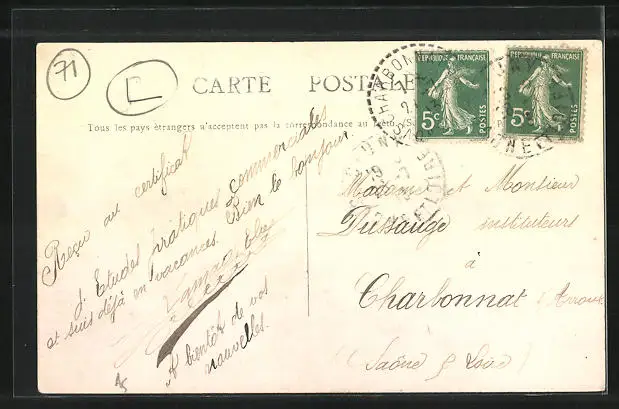 71
L
CARTE POSTALE
Tous les pays étrangers n'acceptent pas la correspondance au recto.
REPUBLIQUE FRANÇAISE
5c POSTES
REPUBLIQUE FRANÇAISE
5c POSTES
Reçu au certificat
d'Etudes pratiques commerciales
et suis déjà en vacances. Bien le bonjour.
A bientôt de vos
nouvelles.
Madame et Monsieur
Dussauge instituteurs
à
Charbonnat
(Saône & Loire)